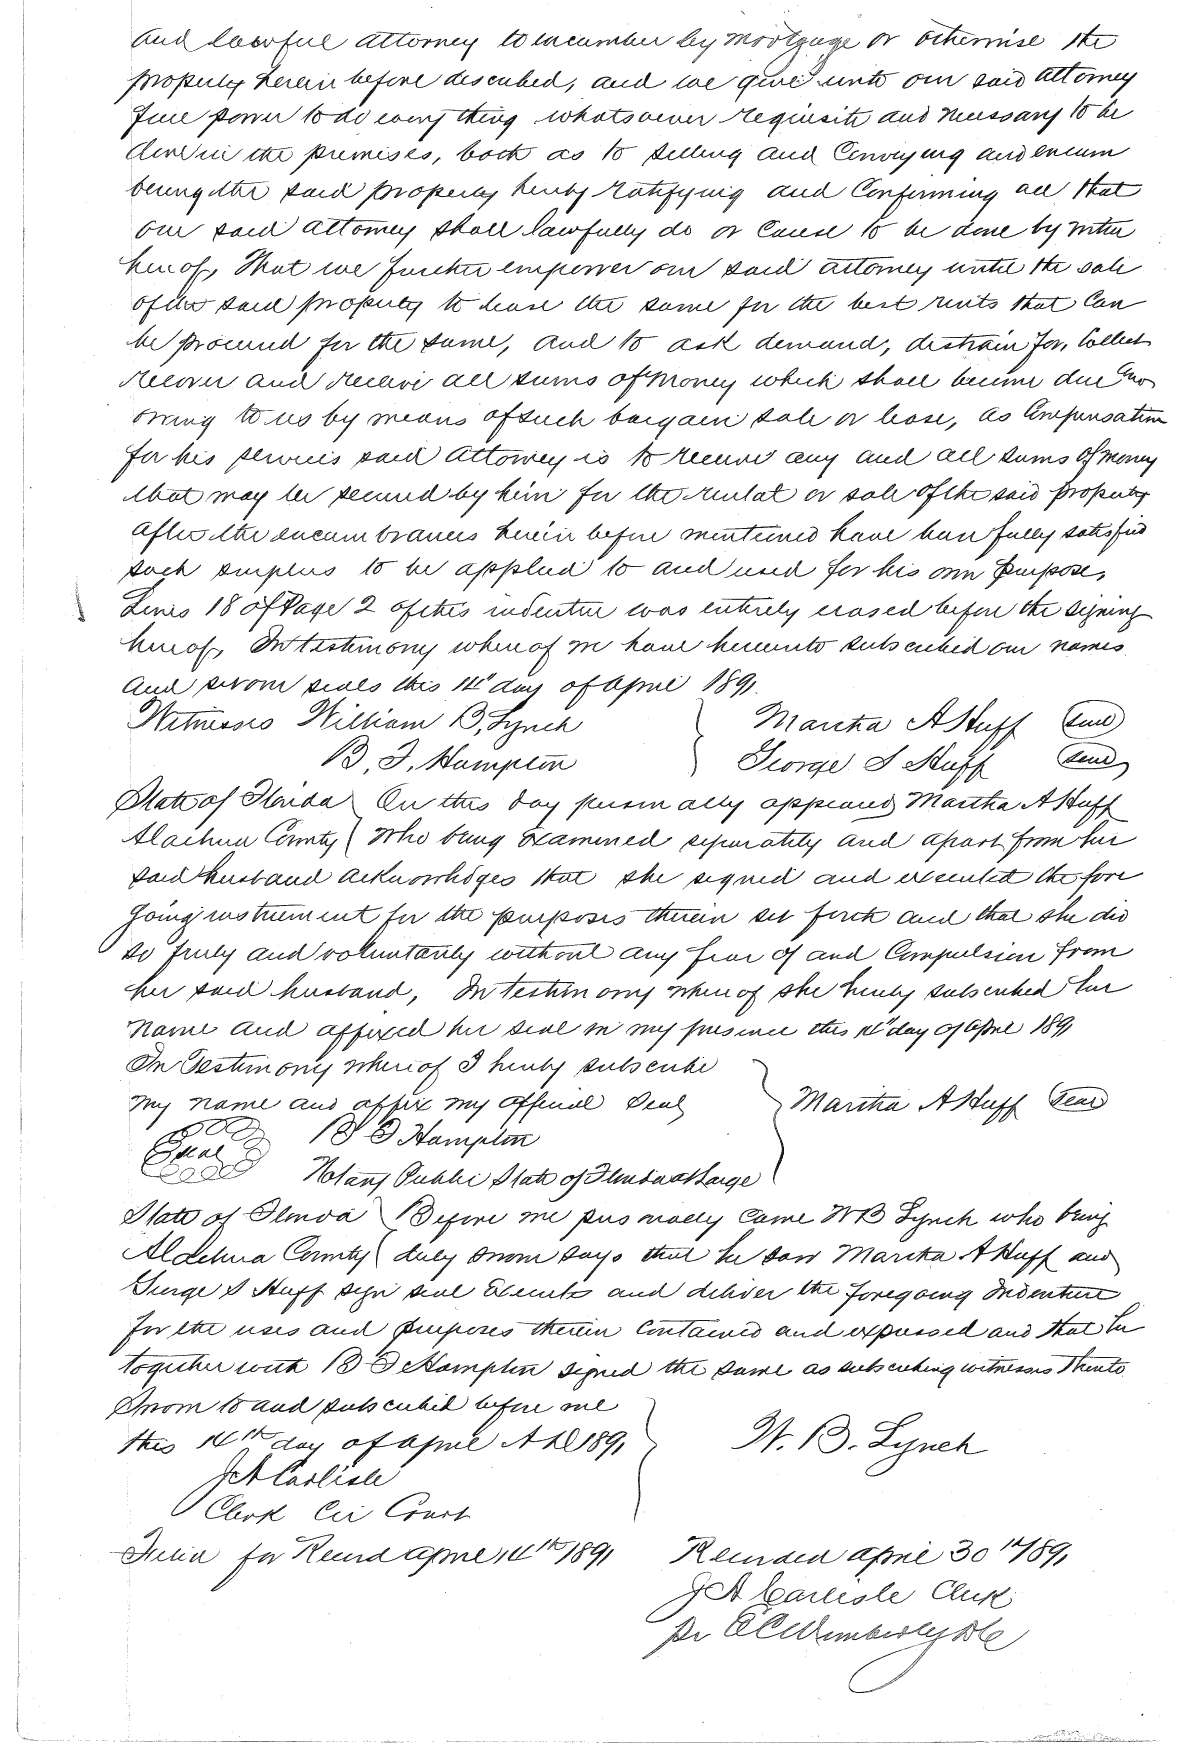 and lawful attorney to encumber by mortgage or otherwise the
property herein before described, and we give unto our said attorney
full power to do everything whatsoever requisite and necessary to be
done in the premises, both as to selling and conveying and encum
bering the said property hereby ratifying and confirming all that
our said attorney shall lawfully do or cause to be done by virtue
hereof, That we further empower our said attorney until the sale
of the said property to lease the same for the best rents that can
be procured for the same, and to ask demand, distrain for, collect
recover and receive all sums of money which shall become due and
owing to us by means of such bargain sale or lease, as compensation
for his services said attorney is to receive any and all sums of money
that may be secured by him for the rental or sale of the said property
after the encumbrances herein before mentioned have been fully satisfied
such surplus to be applied to and used for his own purpose,
Lines 18 of Page 2 of this indenture was entirely erased before the signing
hereof, In testimony whereof we have hereunto subscribed our names
and sworn seals this 14" day of April 1891.
Witnesses William B. Lynch Martha A Huff Seal
B. F. Hampton George S Huff Seal
State of Florida On this day personally appeared Martha A Huff
Alachua County Who being examined separately and apart from her
said husband acknowledges that she signed and executed the fore
going instrument for the purposes therein set forth and that she did
so freely and voluntarily without any fear of and compulsion from
her said husband, In testimony whereof she hereby subscribed her
name and affixed her seal in my presence this 14" day of April 1891
In Testimony whereof I hereby subscribe
my name and affix my official seal Martha A Huff Seal
Seal B F Hampton
Notary Public State of Florida at Large
State of Florida Before me personally came W B Lynch who being
Alachua County duly sworn says that he saw Martha A Huff and
George S Huff sign seal execute and deliver the foregoing Indenture
for the uses and purposes therein contained and expressed and that he
together with B F Hampton signed the same as subscribing witnesses thereto
Sworn to and subscribed before me
this 14th day of April A D 1891 W. B. Lynch
J A Carlisle
Clerk Cir Court
Filed for Record April 14th 1891 Recorded April 30th 1891
J A Carlisle Clerk
pr E C Wimberly D C